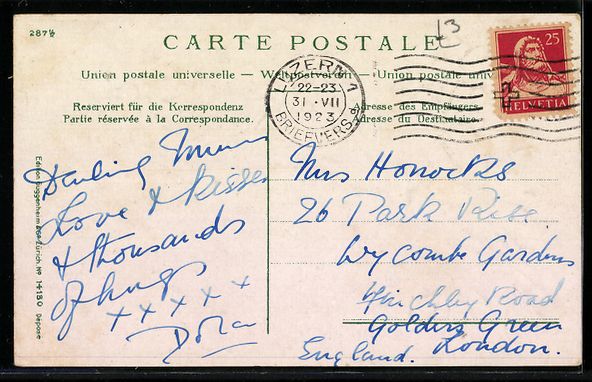 287½
£3
CARTE POSTALE
Union postale universelle — Weltpostverein — Union postale univ
Reserviert für die Korrespondenz
Partie réservée à la Correspondance.
Adresse des Empfängers
Adresse du Destinataire.
LUZERN 1
22-23
31·VII
1923
BRIEFVERS.
25
HELVETIA
Darling Mum
Love & Kisses
& thousands
of hugs
x x x x x
Dora
Mrs Horovitz
26 Park Rise
Wycombe Gardens
Finchley Road
Golders Green
London.
England.
Edition Guggenheim & Co. Zürich, No 14180 Déposé